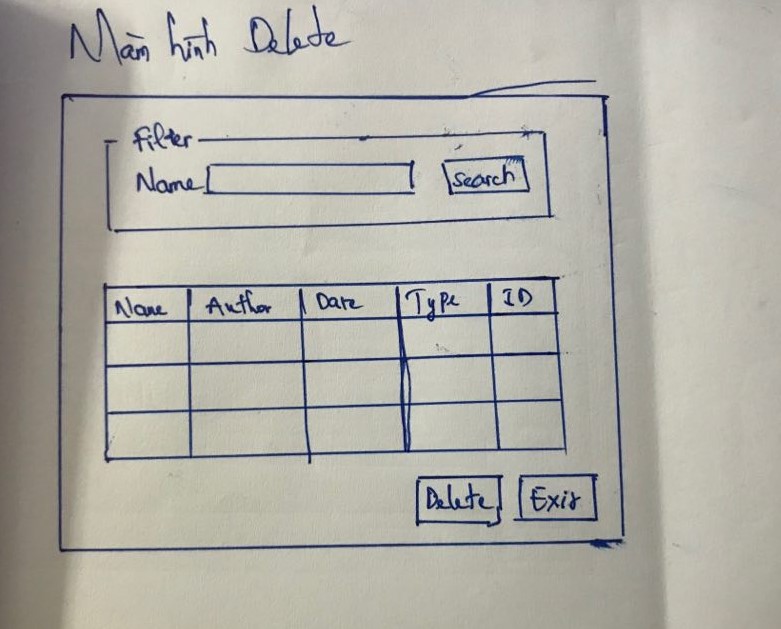 Màn hình Delete
Filter
Name Search
Name Author Date Type ID
Delete Exit